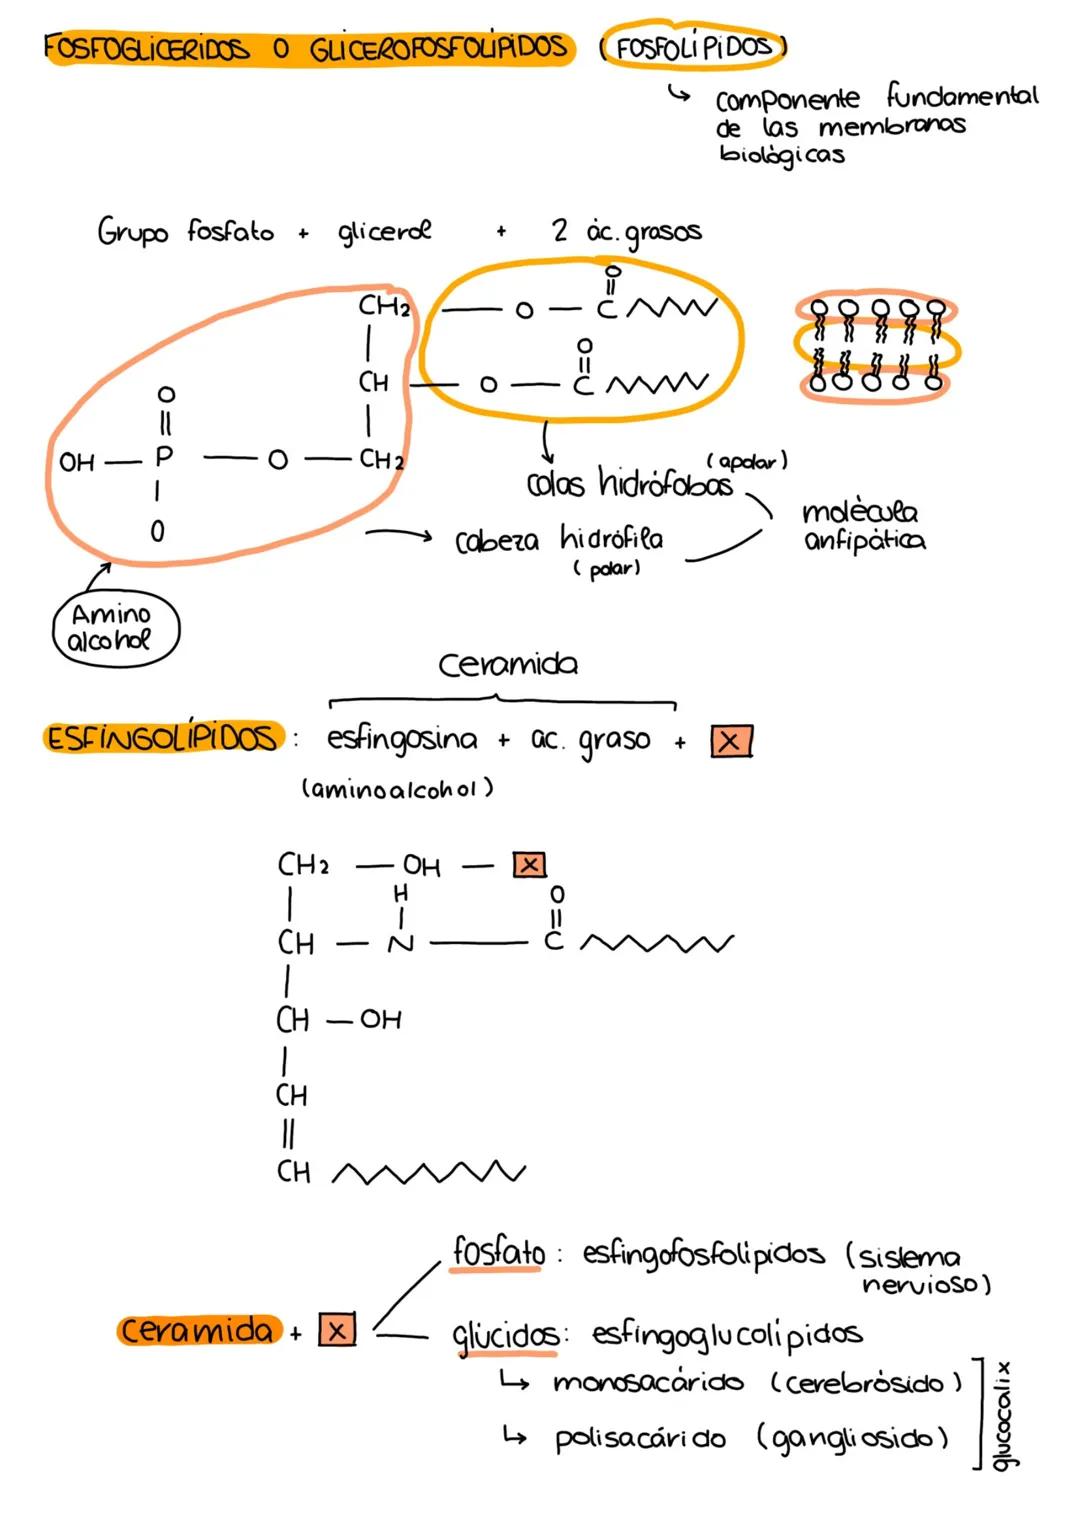 FOSFOGLICERIDOS O GLICEROFOSFOLÍPIDOS (FOSFOLÍPIDOS)
↳ componente fundamental
de las membranas
biológicas
Grupo fosfato + glicerol + 2 ác. grasos
O
CH2 — O — C
O
CH — O — C
O
OH — P — O — CH2
O
colas hidrófobas (apolar)
cabeza hidrófila
(polar)
molécula
anfipática
Amino
alcohol
Ceramida
ESFINGOLÍPIDOS: esfingosina + ac. graso + X
(aminoalcohol)
CH2 — OH — X
H O
CH — N — C
CH — OH
CH
CH
fosfato: esfingofosfolípidos (sistema
nervioso)
ceramida + X
glúcidos: esfingoglucolípidos
↳ monosacárido (cerebrósido)
↳ polisacárido (gangliosido)
glucocalix